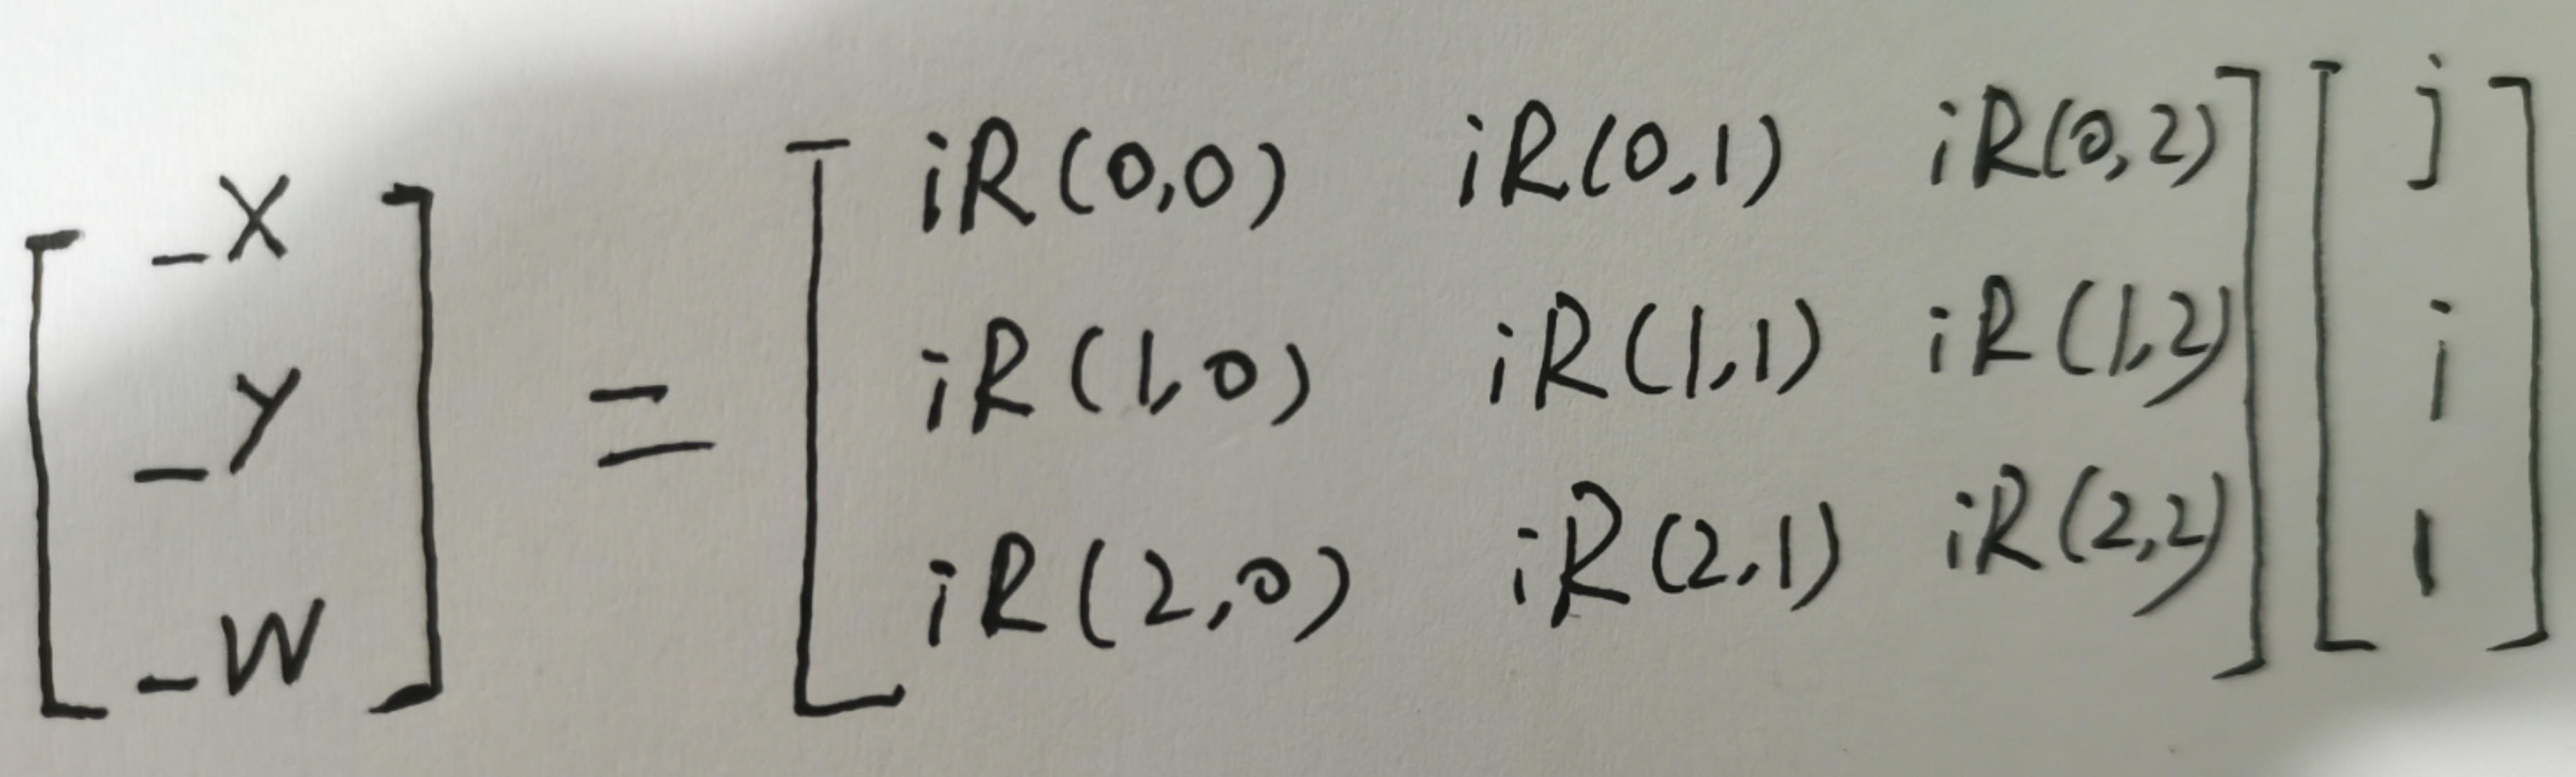 [ _x ] = [ iR(0,0) iR(0,1) iR(0,2) ] [ j ]
[ _y ] [ iR(1,0) iR(1,1) iR(1,2) ] [ i ]
[ _w ] [ iR(2,0) iR(2,1) iR(2,2) ] [ 1 ]